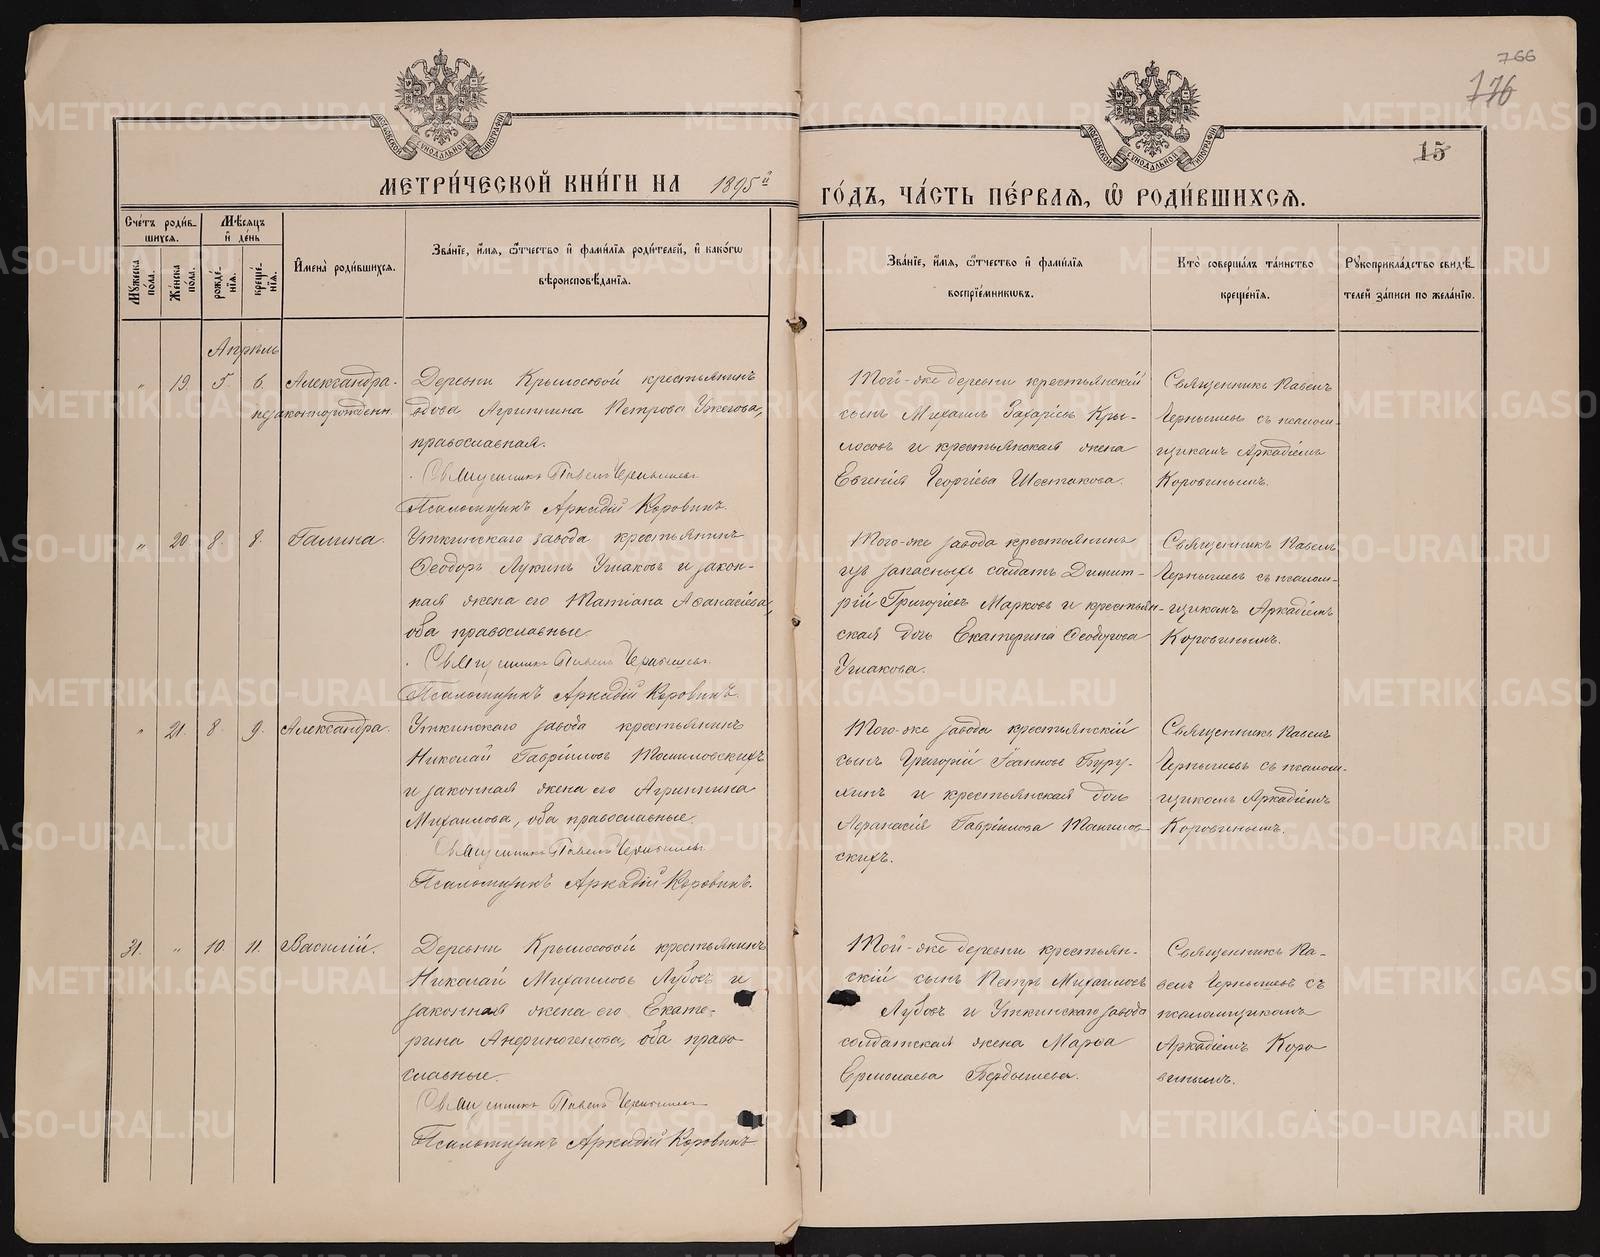 766
776
15
МОСКОВСКОЙ СѴНОДАЛЬНОЙ ТИПОГРАФІИ
МОСКОВСКОЙ СѴНОДАЛЬНОЙ ТИПОГРАФІИ
МЕТРИ́ЧЕСКОЙ КНИ́ГИ НА 1895й ГО́ДЪ, ЧА́СТЬ ПЕ́РВАЯ, Ѡ РОДИ́ВШИХСЯ.
Сче́тъ роди́в
шихся.
Мѣ́сяцъ
и҆ де́нь
Му́жеска по́ла.
Же́нска по́ла.
рожде́нїя.
креще́нїя.
И҆мена̀ роди́вшихся.
Зва́нїе, и҆́мя, ѻ҆́тчество и҆ фами́лїя роди́телей, и҆ како́гѡ
вѣроисповѣ́данїя.
Зва́нїе, и҆́мя, ѻ҆́тчество и҆ фами́лїя
воспрїе́мникѡвъ.
Кто̀ соверша́лъ та́инство
креще́нїя.
Рꙋкоприкла́дство свидѣ́
телей за́писи по жела́нїю.
Апрѣль
" 19. 5. 6. Александра.
незаконнорожденн.
Деревни Крылосовой крестьянинъ
вдова Агриппина Петрова Ужегова,
православная.
Священникъ Павелъ Чернышевъ
Псаломщикъ Аркадій Коровинъ.
Той-же деревни крестьянскій
сынъ Михаилъ Захаріевъ Кры-
лосовъ и крестьянская жена
Евгенія Георгіева Шестакова.
Священникъ Павелъ
Чернышевъ съ псалом-
щикомъ Аркадіемъ
Коровинымъ.
" 20. 8. 8. Галина.
Уткинскаго завода крестьянинъ
Ѳеодоръ Лукинъ Ушаковъ и закон-
ная жена его Татіана Аѳанасіева,
оба православные.
Священникъ Павелъ Чернышевъ
Псаломщикъ Аркадій Коровинъ.
Того-же завода крестьянинъ
изъ запасныхъ солдатъ Димит-
рій Григоріевъ Марковъ и крестьян-
ская дочь Екатерина Ѳеодорова
Ушакова.
Священникъ Павелъ
Чернышевъ съ псалом-
щикомъ Аркадіемъ
Коровинымъ.
" 21. 8. 9. Александра.
Уткинскаго завода крестьянинъ
Николай Гавріиловъ Томиловскихъ
и законная жена его Агриппина
Михаилова, оба православные.
Священникъ Павелъ Чернышевъ
Псаломщикъ Аркадій Коровинъ.
Того-же завода крестьянскій
сынъ Григорій Іоанновъ Буру-
хинъ и крестьянская дочь
Аѳанасія Гавріилова Томилов-
скихъ.
Священникъ Павелъ
Чернышевъ съ псалом-
щикомъ Аркадіемъ
Коровинымъ.
31. " 10. 11. Василій.
Деревни Крылосовой крестьянинъ
Николай Михаиловъ Лубовъ и
законная жена его Екате-
рина Анѳиногенова, оба право-
славные.
Священникъ Павелъ Чернышевъ
Псаломщикъ Аркадій Коровинъ
Той-же деревни крестьян-
скій сынъ Петръ Михаиловъ
Лубовъ и Уткинскаго завода
солдатская жена Марѳа
Ермолаева Бердышева.
Священникъ Па-
велъ Чернышевъ съ
псаломщикомъ
Аркадіемъ Коро
винымъ.
METRIKI.GASO-URAL.RU